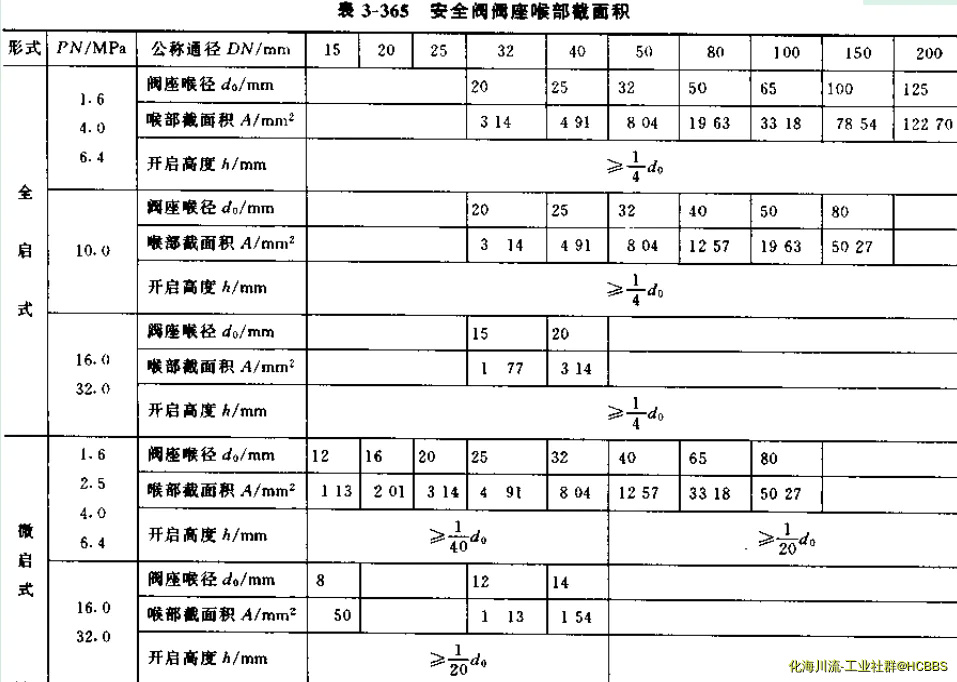 表 3-365 安全阀阀座喉部截面积
形式 PN/MPa 公称通径 DN/mm 15 20 25 32 40 50 80 100 150 200
全启式 1.6 4.0 6.4 阀座喉径 d₀/mm 20 25 32 50 65 100 125
喉部截面积 A/mm² 3 14 4 91 8 04 19 63 33 18 78 54 122 70
开启高度 h/mm ≥1/4 d₀
10.0 阀座喉径 d₀/mm 20 25 32 40 50 80
喉部截面积 A/mm² 3 14 4 91 8 04 12 57 19 63 50 27
开启高度 h/mm ≥1/4 d₀
16.0 32.0 阀座喉径 d₀/mm 15 20
喉部截面积 A/mm² 1 77 3 14
开启高度 h/mm ≥1/4 d₀
微启式 1.6 2.5 4.0 6.4 阀座喉径 d₀/mm 12 16 20 25 32 40 65 80
喉部截面积 A/mm² 1 13 2 01 3 14 4 91 8 04 12 57 33 18 50 27
开启高度 h/mm ≥1/40 d₀ ≥1/20 d₀
16.0 32.0 阀座喉径 d₀/mm 8 12 14
喉部截面积 A/mm² 50 1 13 1 54
开启高度 h/mm ≥1/20 d₀
化海川流-工业社群@HCBBS